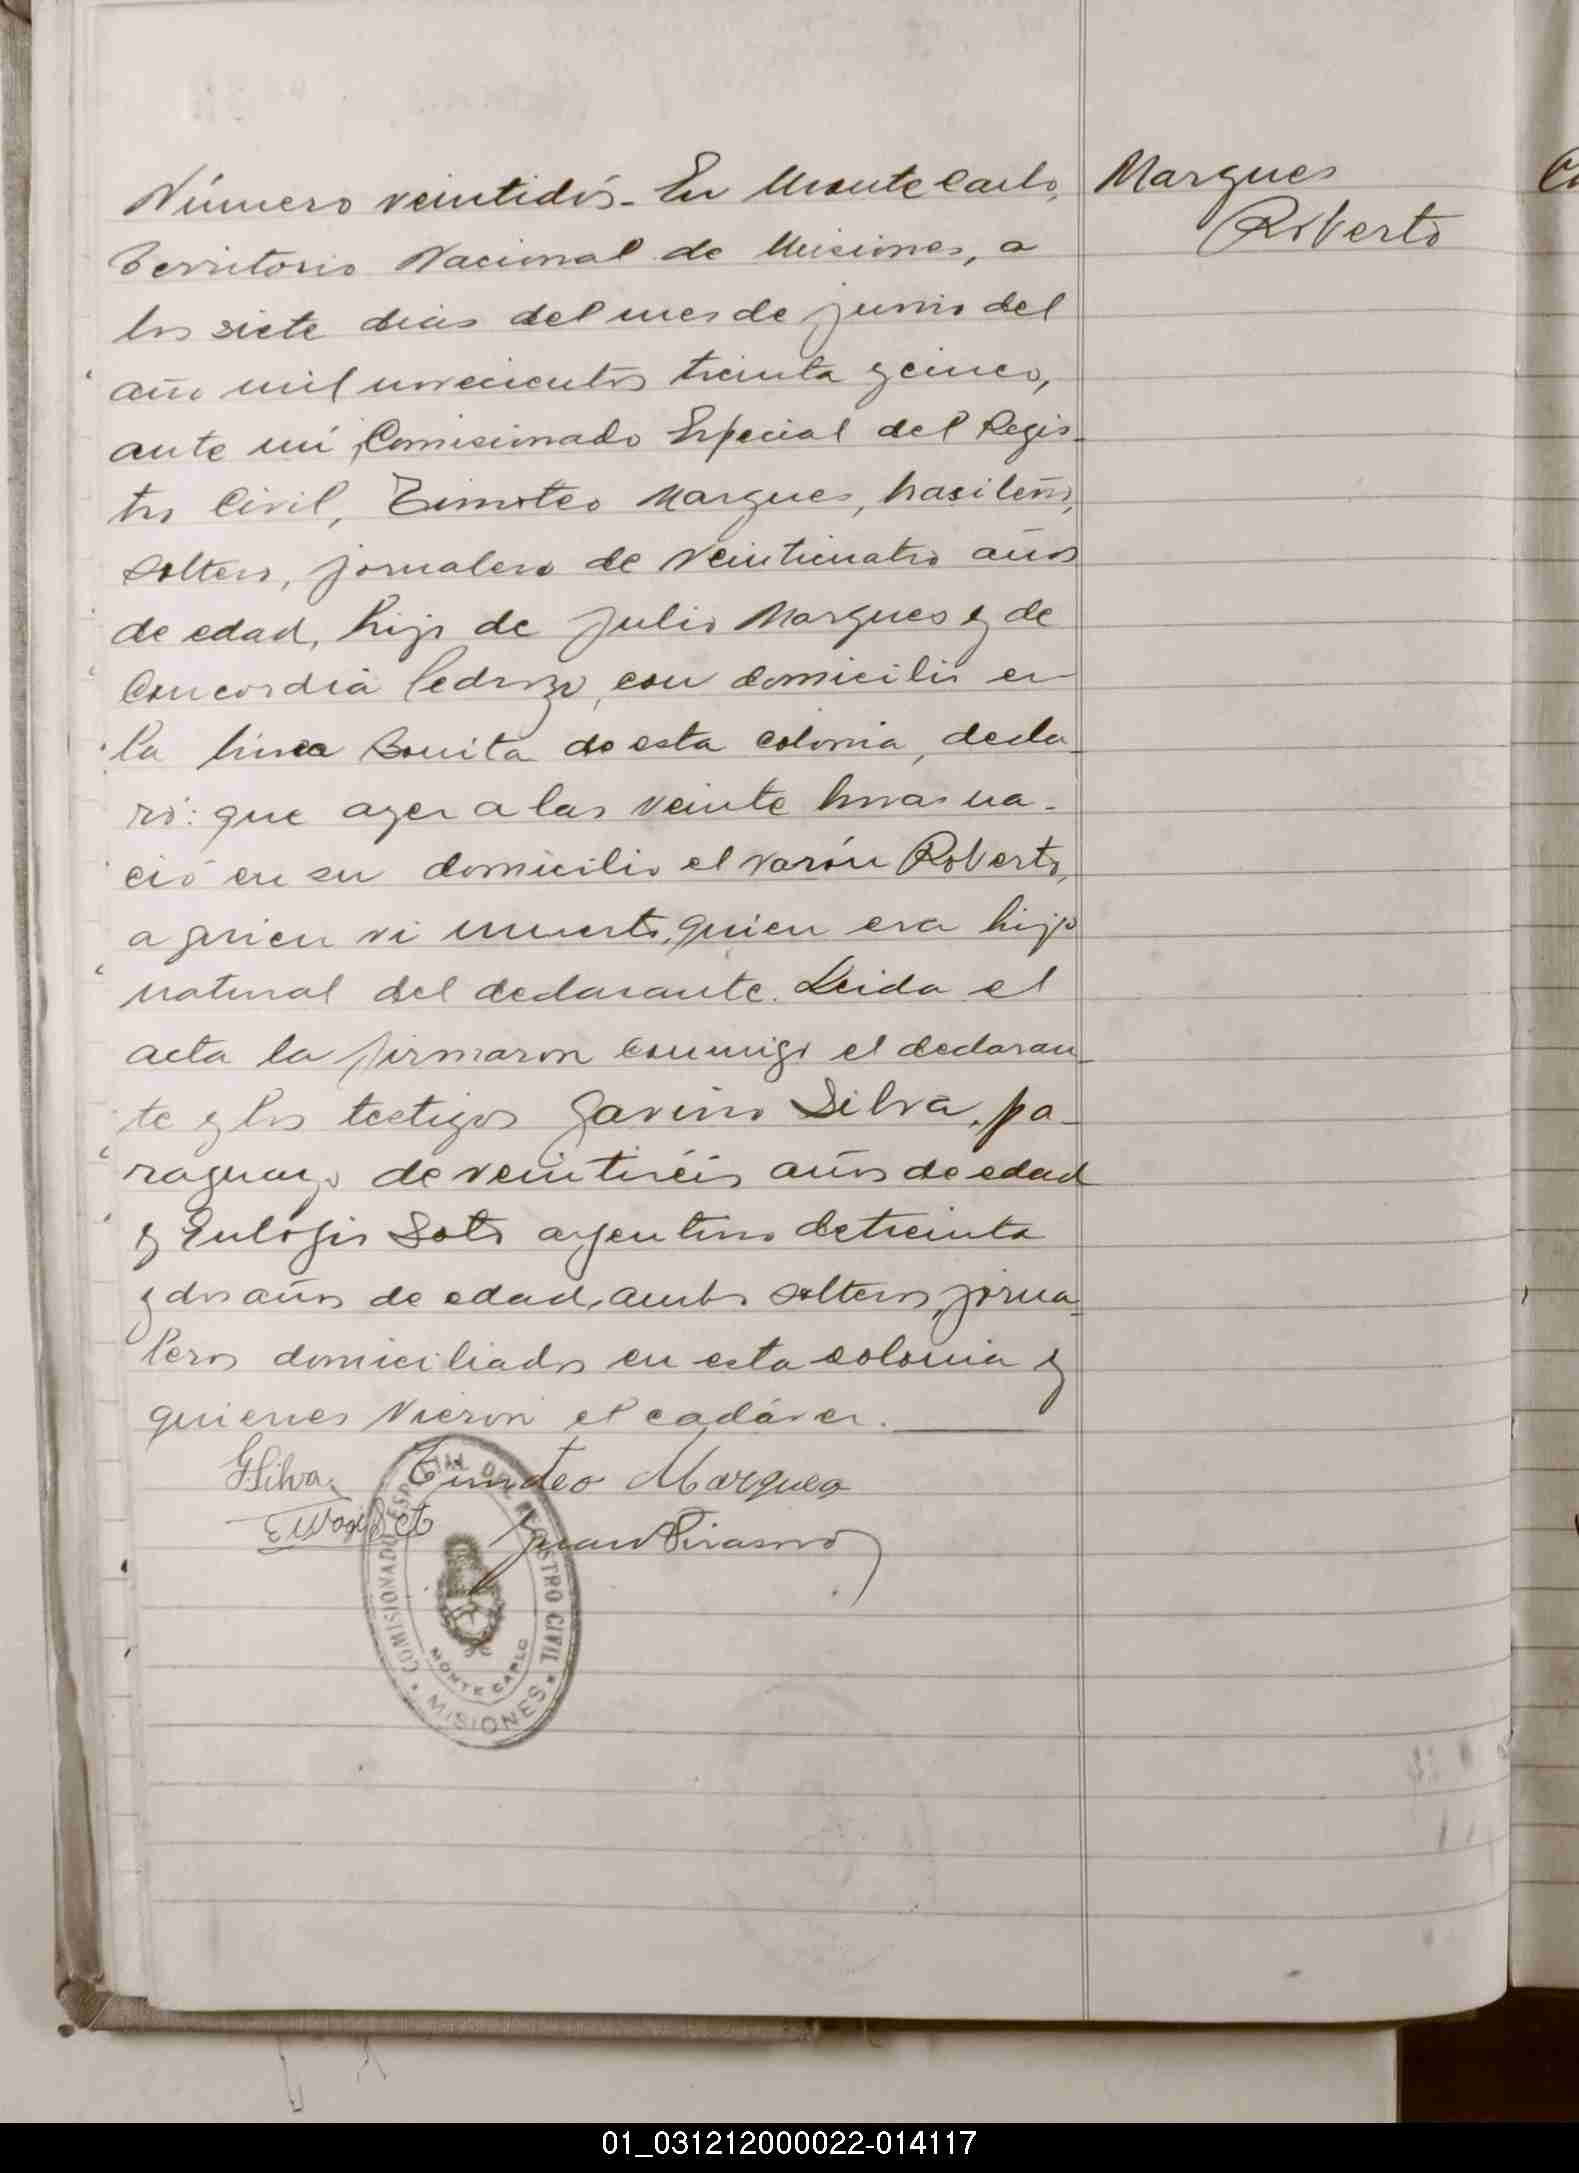 Número veintidós. En Monte Carlo,
Territorio Nacional de Misiones, a
los siete dias del mes de junio del
año mil novecientos treinta y cinco,
ante mí, Comisionado Especial del Regis-
tro Civil, Timoteo Margues, brasileño,
soltero, jornalero de veinticuatro años
de edad, hijo de Julio Margues y de
Concordia Pedrozo, con domicilio en
la linea Bonita de esta colonia, decla-
ró: que ayer a las veinte horas na-
ció en su domicilio el varón Roberto,
a quien vi muerto, quien era hijo
natural del declarante. Leida el
acta la firmaron conmigo el declaran-
te y los testigos Gavino Silva, pa-
raguayo de veintiséis años de edad
y Eulogio Soto argentino de treinta
y dos años de edad, ambos solteros, jorna-
leros domiciliados en esta colonia y
quienes vieron el cadáver.
Margues
Roberto
G. Silva
Timoteo Marques
COMISIONADO ESPECIAL DEL REGISTRO CIVIL
MONTE CARLO
MISIONES
01_031212000022-014117